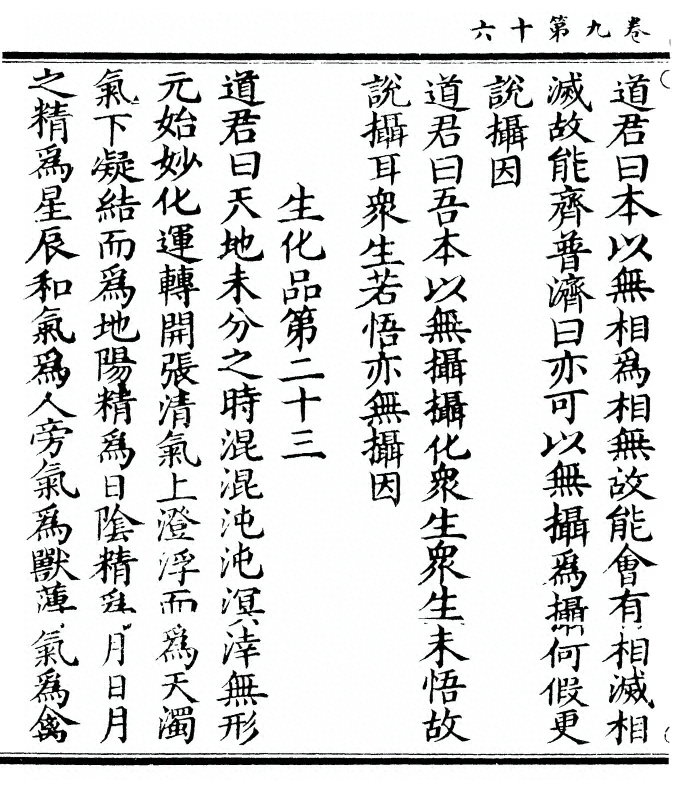 卷九第十六
道君曰本以無相爲相無故能會有相滅相
滅故能齊普濟曰亦可以無攝爲攝何假更
說攝因
道君曰吾本以無攝攝化衆生衆生未悟故
說攝耳衆生若悟亦無攝因
生化品第二十三
道君曰天地未分之時混混沌沌溟涬無形
元始妙化運轉開張清氣上澄浮而爲天濁
氣下凝結而爲地陽精爲日陰精爲月日月
之精爲星辰和氣爲人旁氣爲獸薄氣爲禽